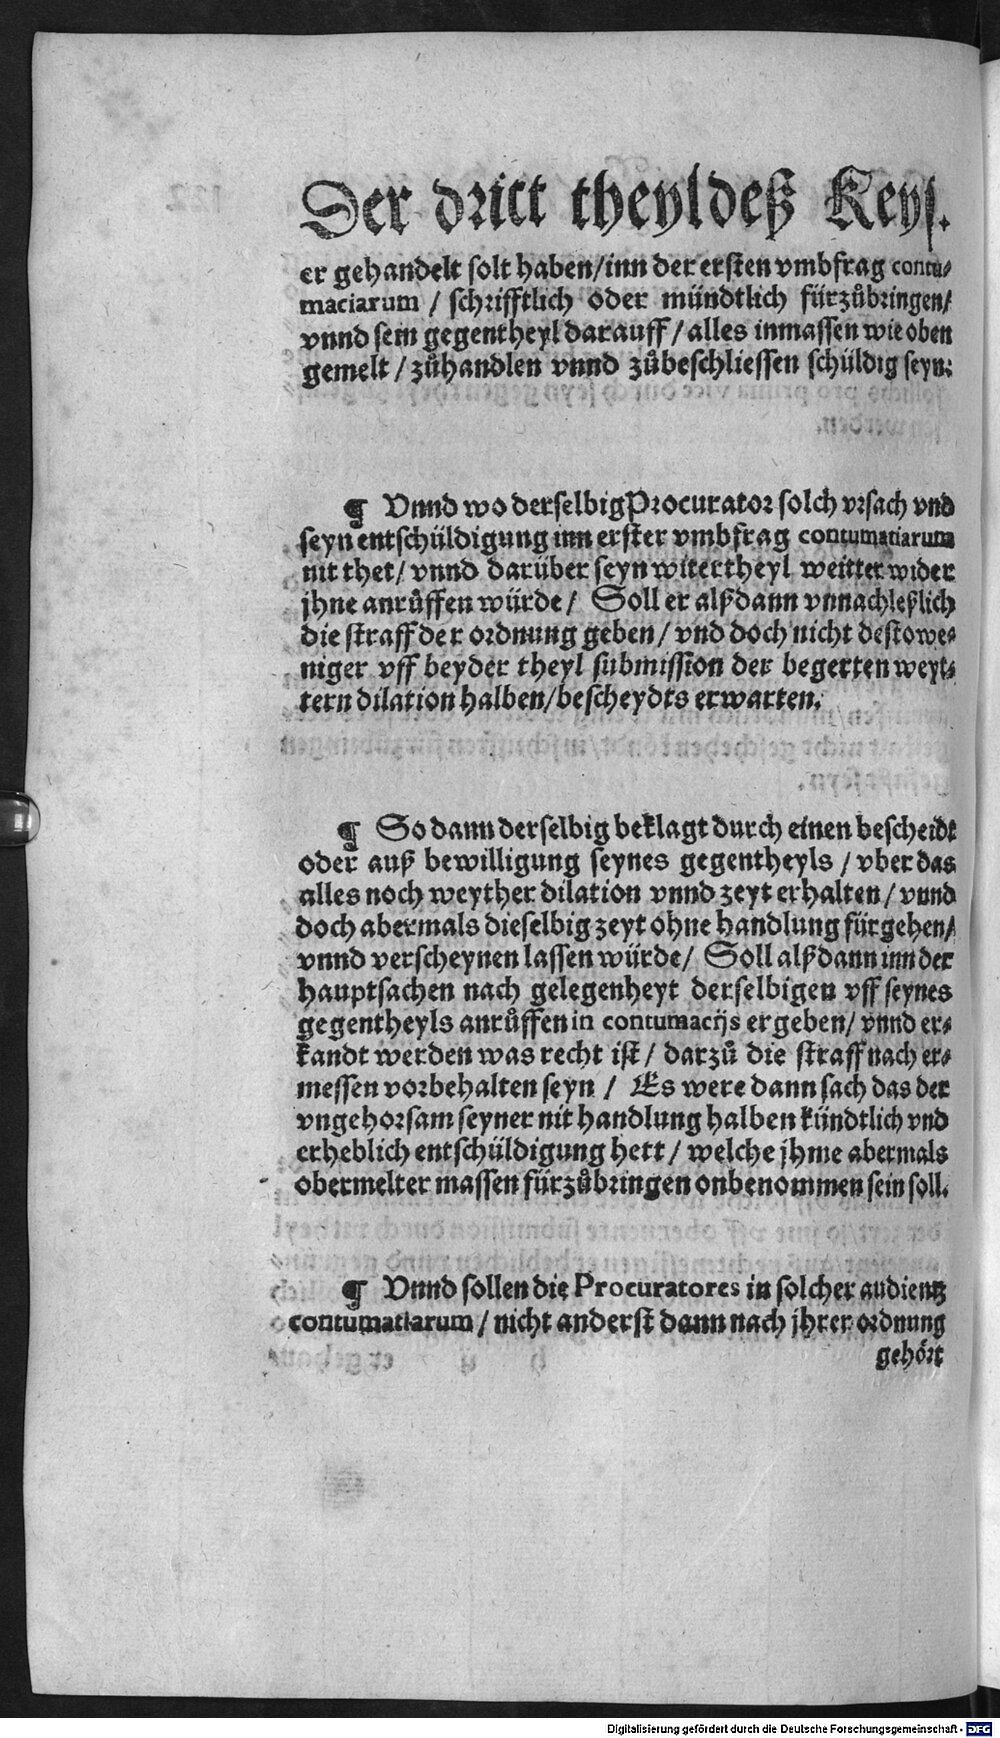 Der dritt theyl deß Keys.
er gehandelt solt haben/inn der ersten vmbfrag contu-
maciarum / schrifftlich oder mündtlich fürzůbringen/
vnnd sein gegentheyl darauff / alles inmassen wie oben
gemelt / zůhandlen vnnd zůbeschliessen schüldig seyn.
¶ Vnnd wo derselbig Procurator solch vrsach vnd
seyn entschüldigung inn erster vmbfrag contumatiarum
nit thet/ vnnd darüber seyn witertheyl weitter wider
jhne anrůffen würde / Soll er alßdann vnnachleßlich
die straff der ordnung geben / vnd doch nicht destowe-
niger vff beyder theyl submission der begerten weyt-
tern dilation halben/bescheydts erwarten.
¶ So dann derselbig beklagt durch einen bescheidt
oder auß bewilligung seynes gegentheyls / vber das
alles noch weyther dilation vnnd zeyt erhalten / vnnd
doch abermals dieselbig zeyt ohne handlung fürgehen/
vnnd verscheynen lassen würde/ Soll alßdann inn der
hauptsachen nach gelegenheyt derselbigen vff seynes
gegentheyls anrůffen in contumacijs ergeben/ vnnd er-
kandt werden was recht ist / darzů die straff nach er-
messen vorbehalten seyn / Es were dann sach das der
vngehorsam seyner nit handlung halben kündtlich vnd
erheblich entschüldigung hett / welche jhme abermals
obermelter massen fürzůbringen onbenommen sein soll.
¶ Vnnd sollen die Procuratores in solcher audientz
contumatiarum / nicht anderst dann nach jhrer ordnung
gehört
Digitalisierung gefördert durch die Deutsche Forschungsgemeinschaft - DFG